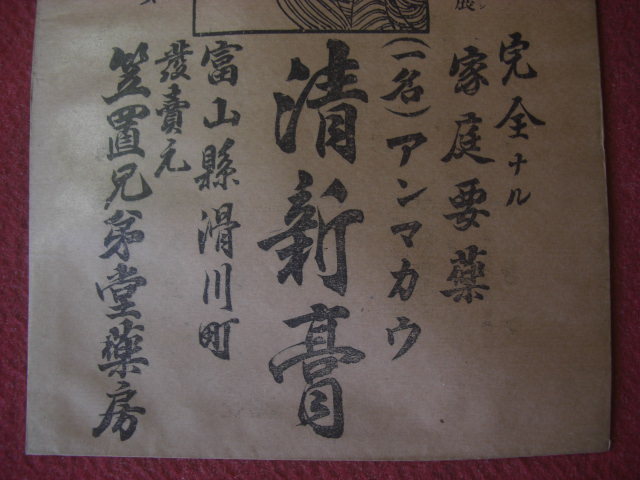 完全ナル
家庭要藥
(一名)アンマカウ
清新膏
富山縣滑川町
發賣元
笠置兄弟堂藥房